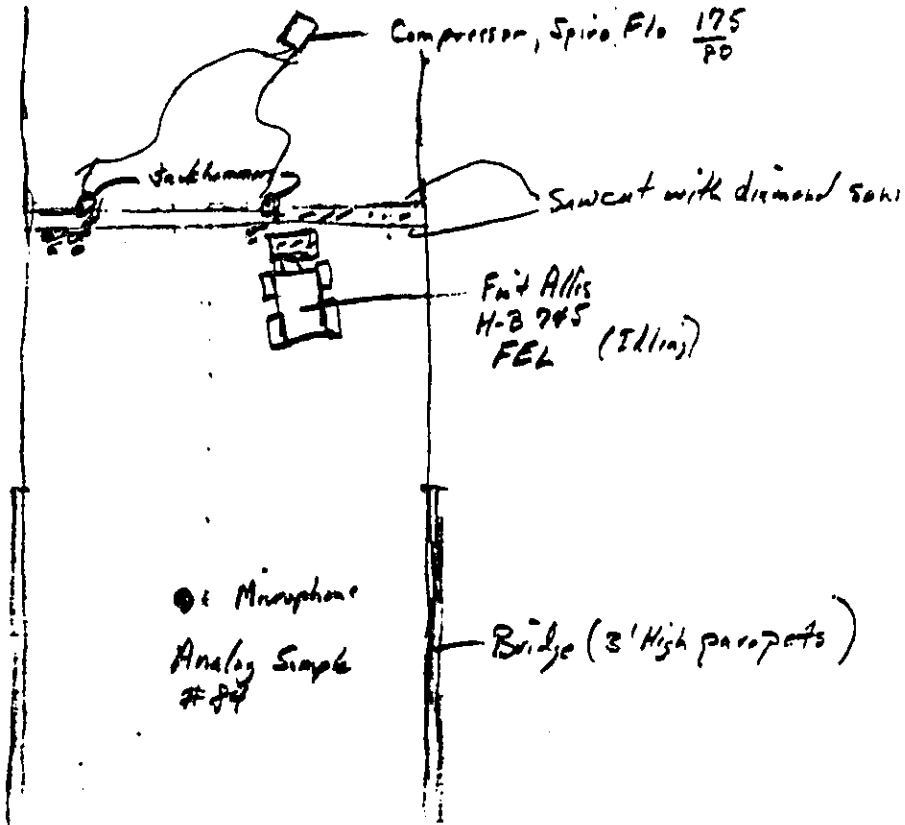 Compressor, Spiro Flo 175
80
Jackhammers
Sawcut with diamond saws
Fiat Allis
H-B 745
FEL (Idling)
= Microphone
Analog Sample
#84
Bridge (3' High parapets)